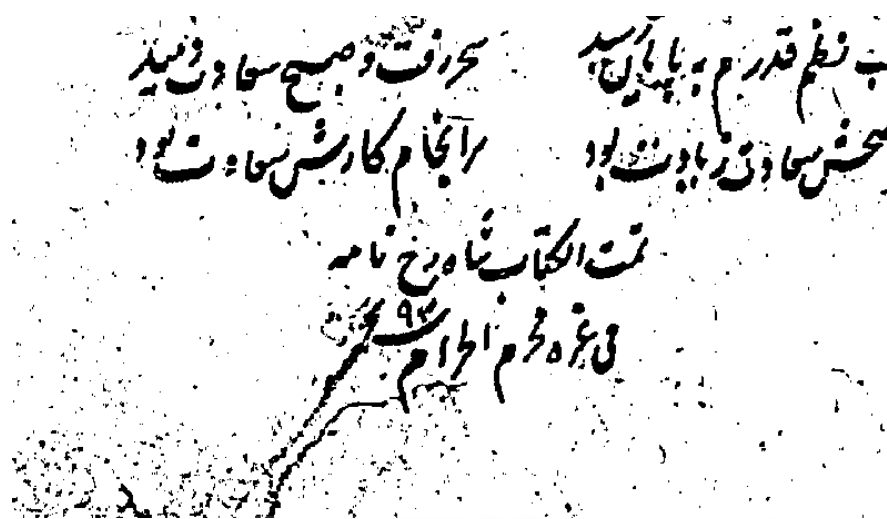 نظم قدرم به پایان رسید سحر رفت و صبح سعادت دمید
سعادت زیادت بود سرانجام کارش سعادت بود
تمت الکتاب شاه رخ نامه
فی غره محرم الحرام